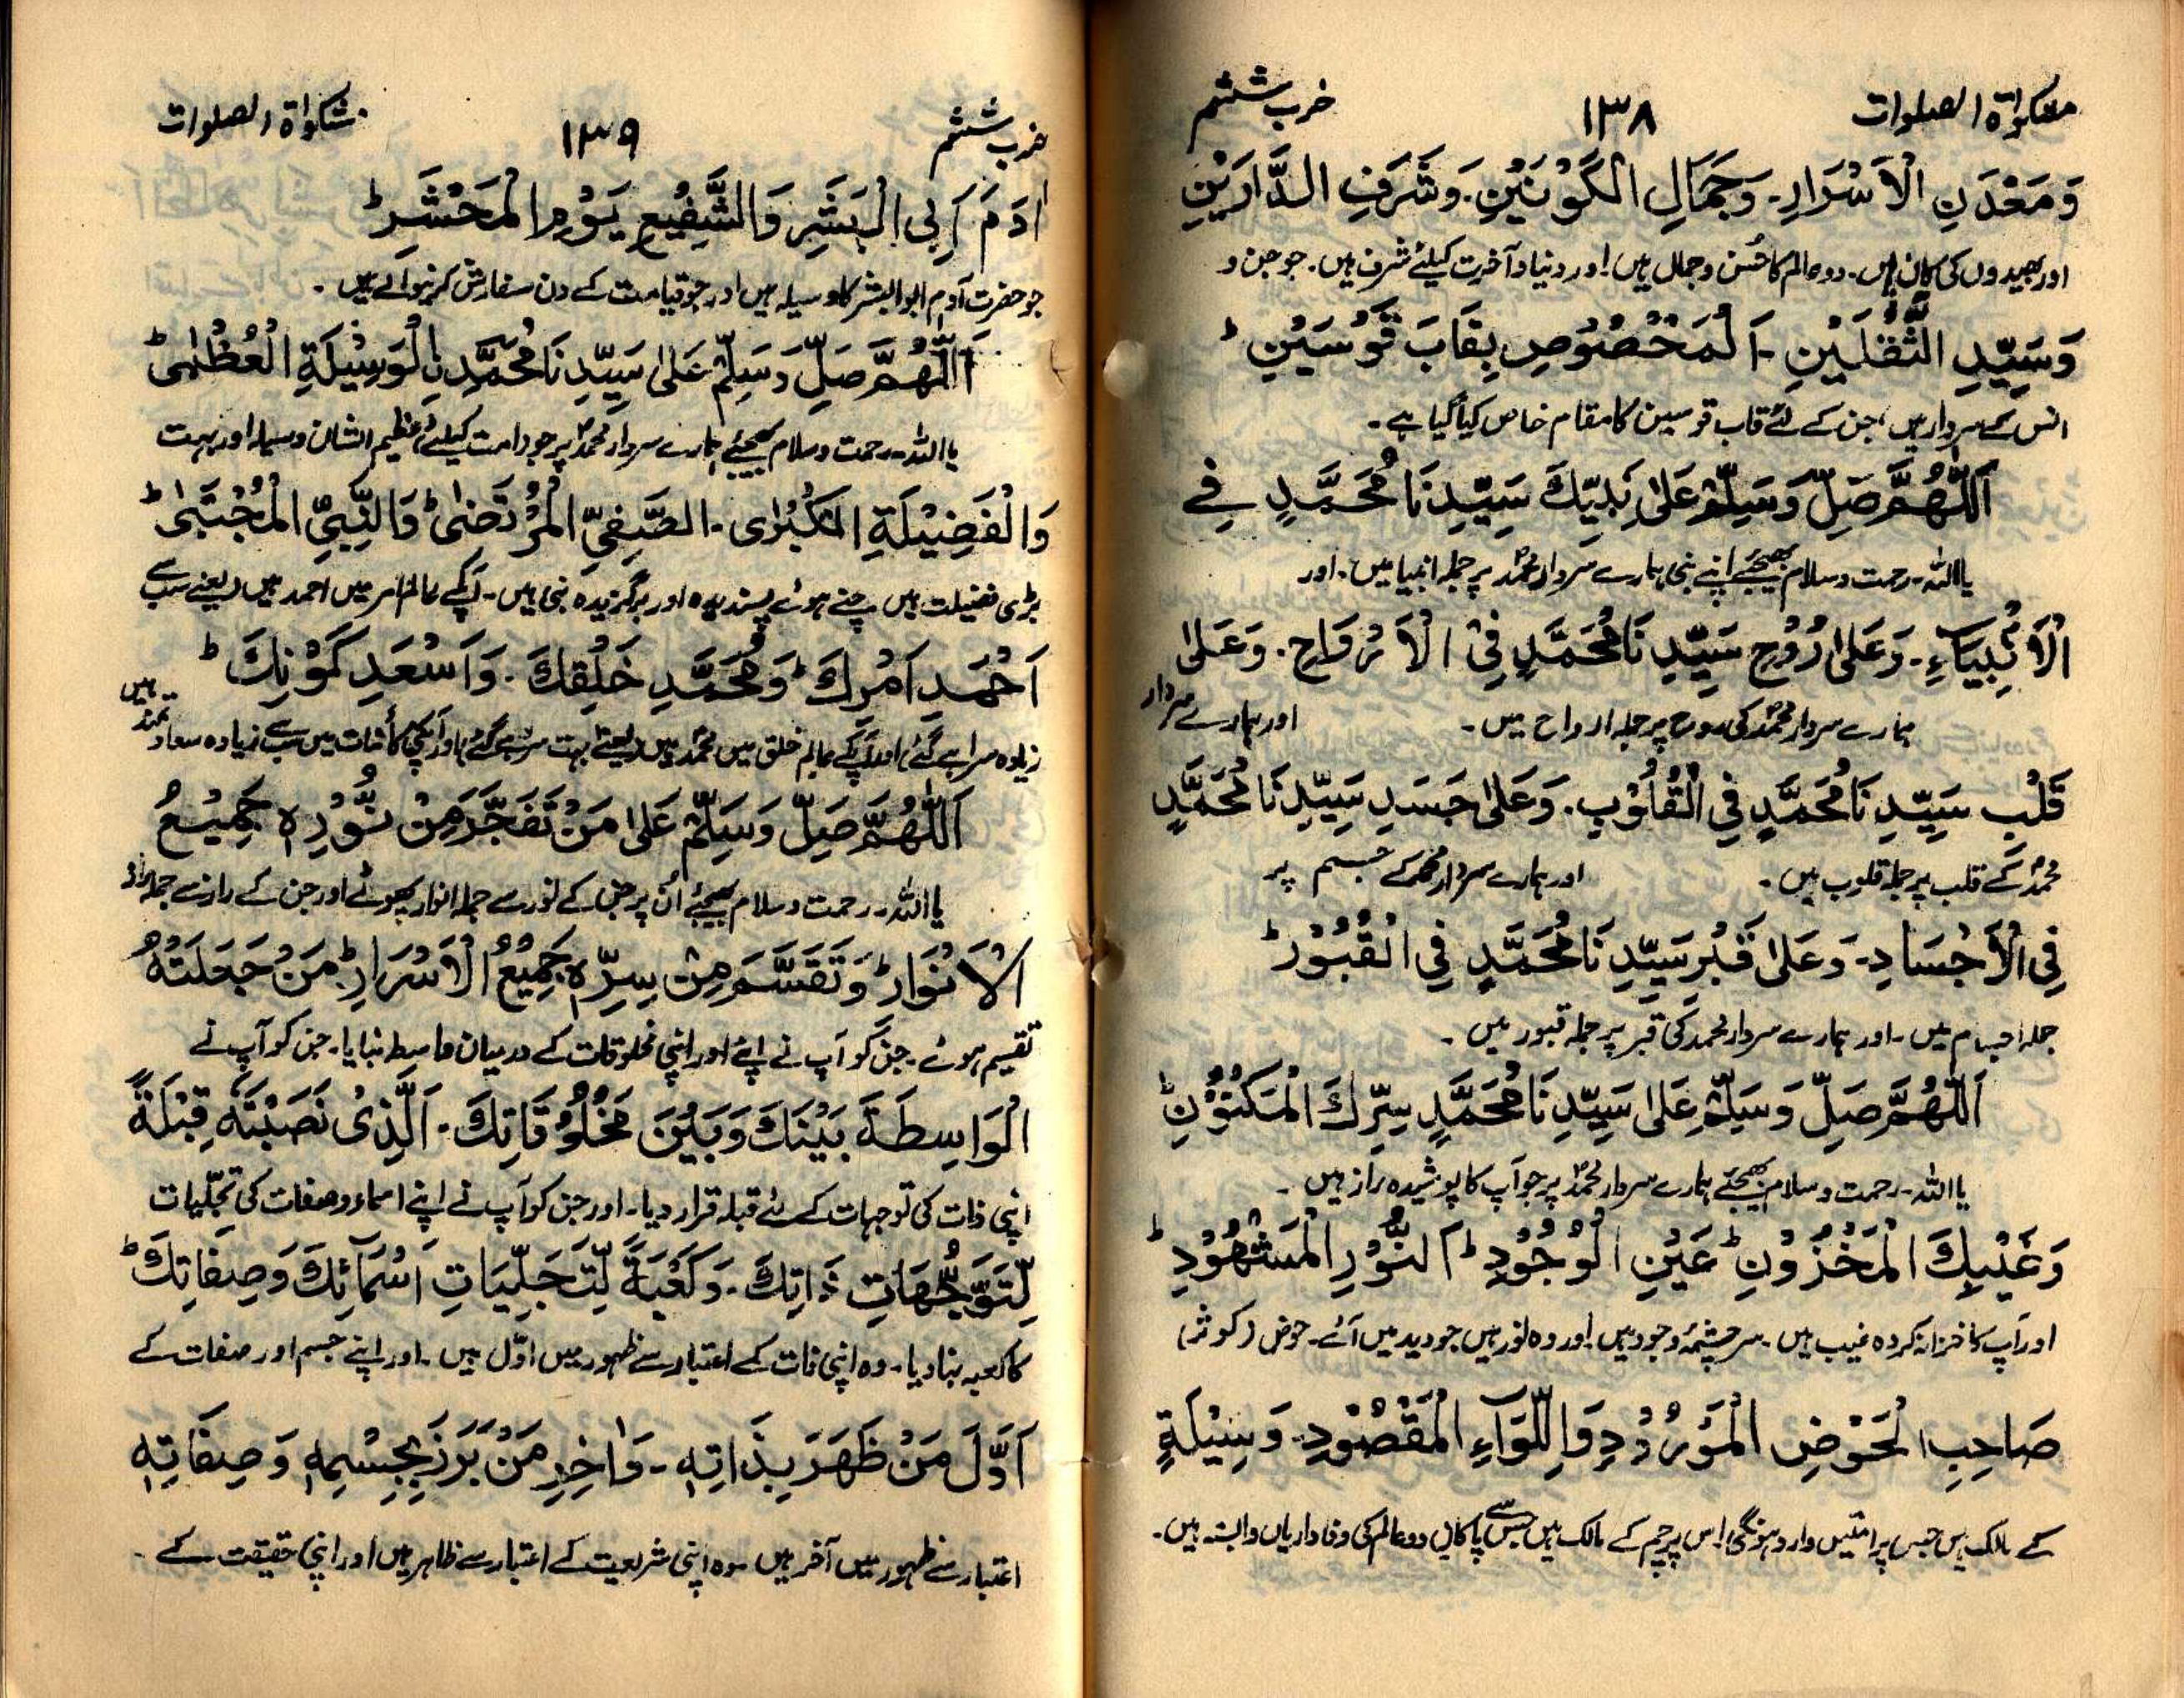 مشکوٰۃ الصلوات ۱۳۸ حزب ششم
وَمَعْدَنِ الْاَسْرَارِ۔ وَجَمَالِ الْكَوْنَيْنِ۔ وَشَرَفِ الدَّارَيْنِ
اور بھیدوں کی کان ہیں۔ دو عالم کا حُسن و جمال ہیں اور دنیا و آخرت کیلئے شرف ہیں۔ جو جن و
وَسَيِّدِ الثَّقَلَيْنِ۔ اَلْمَخْصُوْصِ بِقَابَ قَوْسَيْنِ ؕ
انس کے سردار ہیں، جن کے لئے قاب قوسین کا مقام خاص کیا گیا ہے۔
اَللّٰهُمَّ صَلِّ وَسَلِّمْ عَلٰى نَبِيِّكَ سَيِّدِنَا مُحَمَّدٍ فِی
یا اللہ۔ رحمت و سلام بھیجئے اپنے نبی ہمارے سردار محمدؐ پر جملہ انبیا میں۔ اور
الْاَنْبِيَآءِ۔ وَعَلٰى رُوْحِ سَيِّدِنَا مُحَمَّدٍ فِى الْاَرْوَاحِ۔ وَعَلٰى
ہمارے سردار محمدؐ کی روح پر جملہ ارواح میں۔ اور ہمارے سردار
قَلْبِ سَيِّدِنَا مُحَمَّدٍ فِی الْقُلُوْبِ۔ وَعَلٰى جَسَدِ سَيِّدِنَا مُحَمَّدٍ
محمدؐ کے قلب پر جملہ قلوب میں۔ اور ہمارے سردار محمدؐ کے جسم پر
فِی الْاَجْسَادِ۔ وَعَلٰى قَبْرِ سَيِّدِنَا مُحَمَّدٍ فِی الْقُبُوْرِ ؕ
جملہ اجسام میں۔ اور ہمارے سردار محمدؐ کی قبر پر جملہ قبور میں۔
اَللّٰهُمَّ صَلِّ وَسَلِّمْ عَلٰى سَيِّدِنَا مُحَمَّدٍ سِرِّكَ الْمَكْنُوْنِ ؕ
یا اللہ۔ رحمت و سلام بھیجئے ہمارے سردار محمدؐ پر جو آپ کا پوشیدہ راز ہیں۔
وَغَيْبِكَ الْمَخْزُوْنِ ؕ عَيْنِ الْوُجُوْدِ ؕ اَلنُّوْرِ الْمَشْهُوْدِ ؕ
اور آپ کا خزانہ کردہ غیب ہیں۔ سرچشمۂ وجود ہیں اور وہ نور ہیں جو دید میں آئے۔ حوض (کوثر)
صَاحِبِ الْحَوْضِ الْمَوْرُوْدِ وَاللِّوَآءِ الْمَقْصُوْدِ۔ وَسِيْلَةِ
کے مالک ہیں جس پر امتیں وارد ہونگی اس پرچم کے مالک ہیں جس سے پاکانِ دو عالم کی وفاداریاں وابستہ ہیں۔
حزب ششم ۱۳۹ مشکوٰۃ الصلوات
اٰدَمَ اَبِی الْبَشَرِ وَالشَّفِيْعِ يَوْمِ الْمَحْشَرِ ؕ
جو حضرت آدم ابو البشر کا وسیلہ ہیں اور جو قیامت کے دن سفارش کرنیوالے ہیں۔
اَللّٰهُمَّ صَلِّ وَسَلِّمْ عَلٰى سَيِّدِنَا مُحَمَّدِ نِالْوَسِيْلَةِ الْعُظْمٰى ؕ
یا اللہ۔ رحمت و سلام بھیجئے ہمارے سردار محمدؐ پر جو امت کیلئے عظیم الشان وسیلہ اور بہت
وَالْفَضِيْلَةِ الْكُبْرٰى۔ الصَّفِیِّ الْمُرْتَضٰى ؕ وَالنَّبِیِّ الْمُجْتَبٰى ؕ
بڑی فضیلت ہیں چنے ہوئے پسندیدہ اور برگزیدہ نبی ہیں۔ آپکے عالم امر میں احمد ہیں (یعنے سب سے
اَحْمَدِ اَمْرِكَ ؕ وَمُحَمَّدِ خَلْقِكَ۔ وَاَسْعَدِ كَوْنِكَ ؕ
زیادہ سراہے گئے) اور آپکے عالم خلق میں محمدؐ ہیں (یعنے بہت سراہے گئے) اور آپکی کائنات میں سب سے زیادہ سعادتمند ہیں
اَللّٰهُمَّ صَلِّ وَسَلِّمْ عَلٰى مَنْ تَفَجَّرَ مِنْ نُّوْرِهٖ جَمِيْعُ
یا اللہ۔ رحمت و سلام بھیجئے اُن پر جن کے نور سے جملہ انوار پھوٹے اور جن کے راز سے جملہ راز
الْاَنْوَارِ ؕ وَتَقَسَّمَ مِنْ سِرِّهٖ جَمِيْعُ الْاَسْرَارِ ؕ مَنْ جَعَلْتَهُ
تقسیم ہوئے۔ جن کو آپ نے اپنے اور اپنی مخلوقات کے درمیان واسطہ بنایا۔ جن کو آپ نے
الْوَاسِطَةَ بَيْنَكَ وَبَيْنَ مَخْلُوْقَاتِكَ۔ اَلَّذِیْ نَصَبْتَهٗ قِبْلَةً
اپنی ذات کی توجہات کے لئے قبلہ قرار دیا۔ اور جن کو آپ نے اپنے اسماء و صفات کی تجلّیات
لِّتَوَجُّهَاتِ ذَاتِكَ۔ وَكَعْبَةً لِّتَجَلِّيَاتِ اَسْمَآئِكَ وَصِفَاتِكَ ؕ
کا کعبہ بنا دیا۔ وہ اپنی ذات کے اعتبار سے ظہور میں اوّل ہیں۔ اور اپنے جسم اور صفات کے
اَوَّلَ مَنْ ظَهَرَ بِذَاتِهٖ۔ وَاٰخِرِ مَنْ بَرَزَ بِجِسْمِهٖ وَصِفَاتِهٖ
اعتبار سے ظہور میں آخر ہیں۔ وہ اپنی شریعت کے اعتبار سے ظاہر ہیں اور اپنی حقیقت کے۔